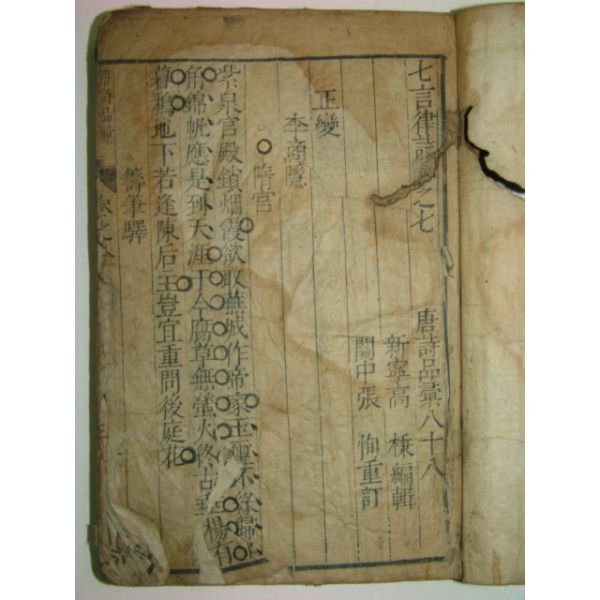 七言律詩卷之七 唐詩品彙八十八
新寧高 棅編輯
關中張 恂重訂
正變
李商隱
隋宮
紫泉宮殿鎖烟霞欲取蕪城作帝家玉璽不緣歸日
角錦帆應是到天涯于今腐草無螢火終古垂楊有
暮鴉地下若逢陳后主豈宜重問後庭花
籌筆驛
唐詩品彙